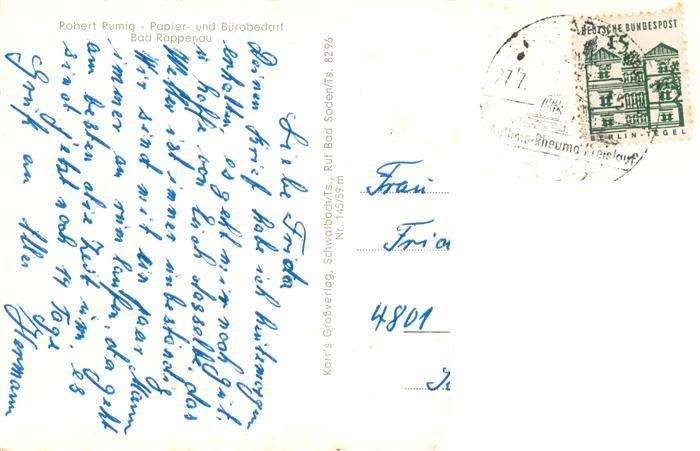 Robert Rumig - Papier- und Bürobedarf
Bad Rappenau
Liebe Frida
Deinen Brief habe ich heutemorgen
erhalten, es geht mir noch gut,
u hoffe von Euch dasselbe, das
Wetter ist immer unbeständig
Wir sind mit ein paar Mann
immer am rum laufen, da geht
am besten die Zeit um, es
sind jetzt noch 14 Tage
Gruß an Alle
Hermann
Karr's Großverlag, Schwalbach/Ts., Ruf Bad Soden/Ts. 8296
Nr. 145/59 m
Frau
4801
27.7.
Rheuma
DEUTSCHE BUNDESPOST
15
BERLIN-TEGEL